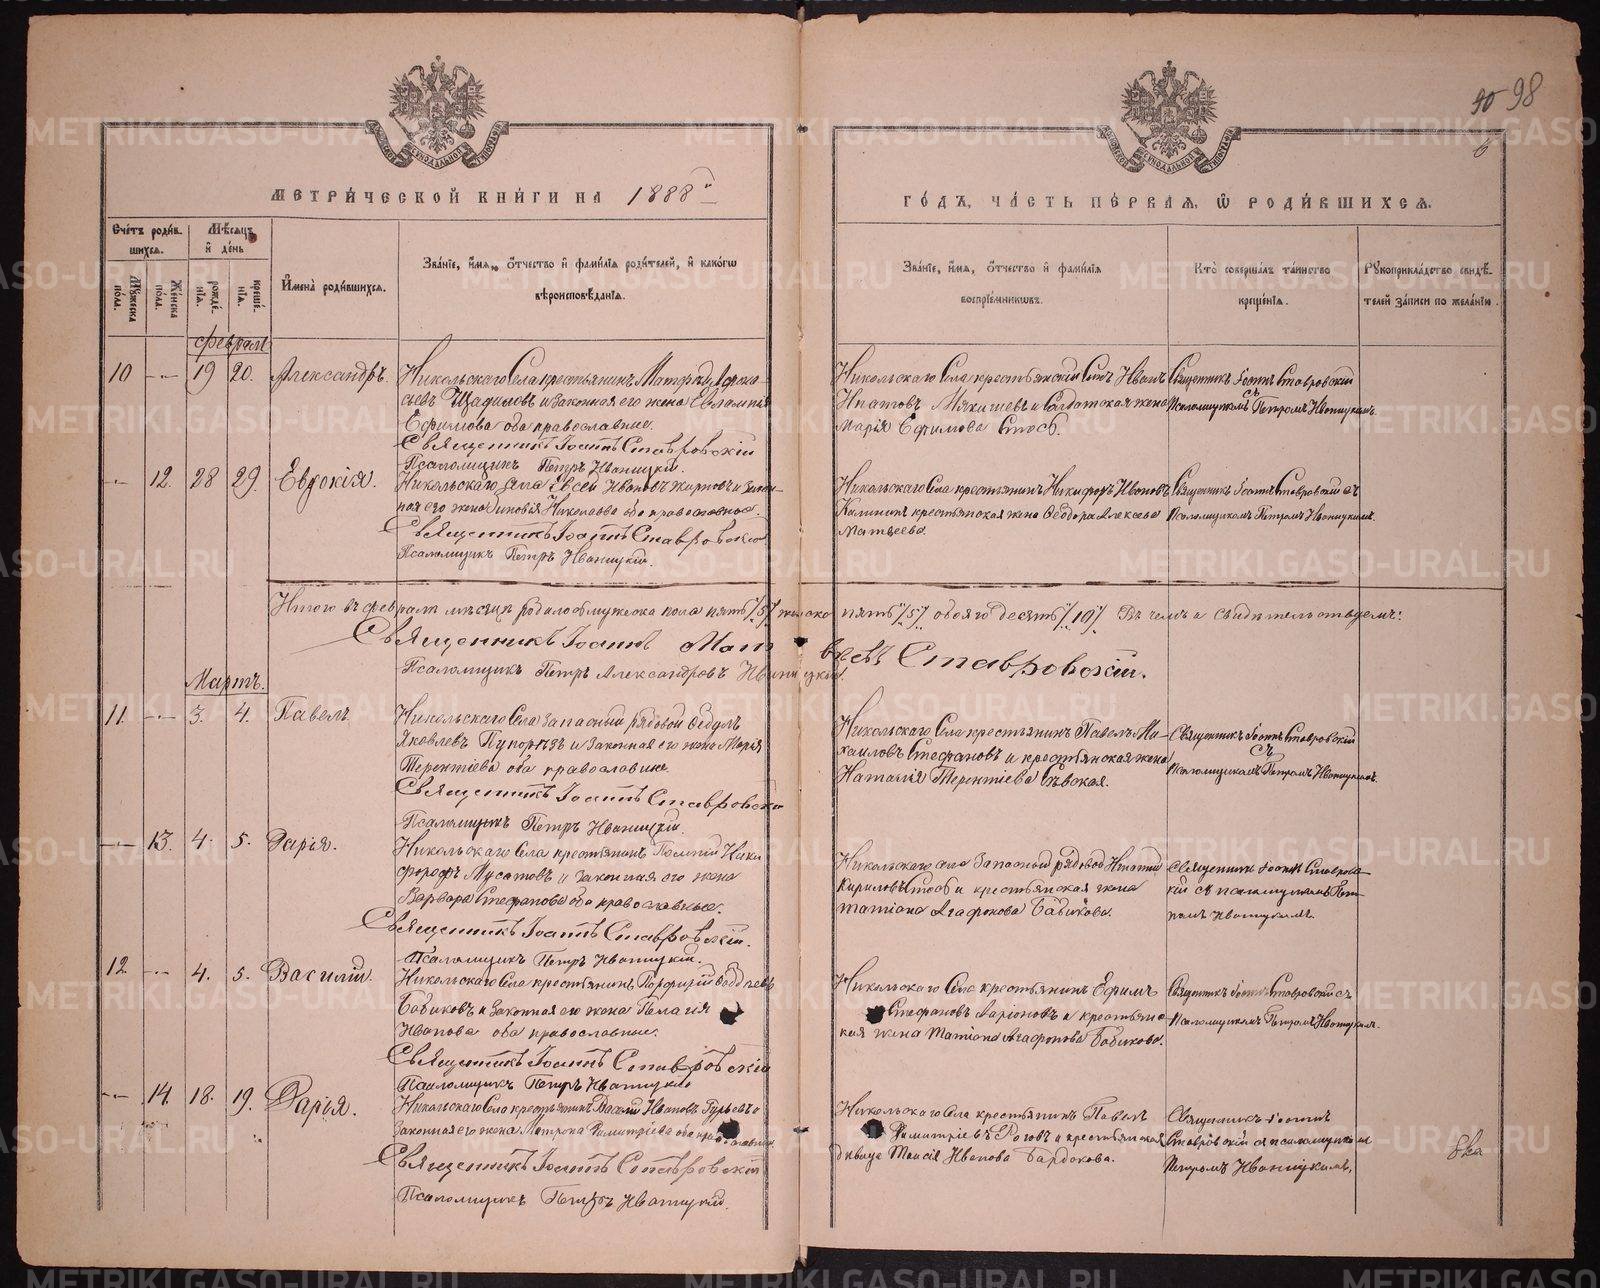 90 98
6
МЕТРИ́ЧЕСКОЙ КНИ́ГИ НА 1888й
ГО́ДЪ, ЧА́СТЬ ПЕ́РВАЯ, Ѿ РОДИ́ВШИХСЯ.
Сче́тъ роди́в-
шихся.
Мѣ́сяцъ
и҆ де́нь
Му́жеска по́ла.
Же́нска по́ла.
рожде́нїя.
креще́нїя.
И҆мена̀ роди́вшихся.
Зва́нїе, и҆́мя, ѻ҆́тчество и҆ фами́лїя роди́телей, и҆ како́гѡ
вѣроисповѣ́данїя.
Зва́нїе, и҆́мя, ѻ҆́тчество и҆ фами́лїя
воспрїе́мникѡвъ.
Кто̀ соверша́лъ та́инство
креще́нїя.
Рꙋкоприкла́дство свидѣ́-
телей за́писи по жела́нїю.
Февраль
10 19 20. Александръ.
Никольскаго Села крестьянинъ
сьевъ и законная его жена Евлампія
Ефимова оба православные.
Священникъ Іоаннъ Ставровскій
Псаломщикъ Петръ Иваницкій.
Никольскаго Села крестьянскій сынъ Иванъ
Ипатовъ Мякишевъ и Солдатская жена
Марія Ефимова
Священникъ Іоаннъ Ставровскій
съ
Псаломщикомъ Петромъ Иваницкимъ.
12. 28 29. Евдокія.
Никольскаго села Евсей Ивановъ и закон-
ная его жена Зиновія Николаева оба православные.
Священникъ Іоаннъ Ставровскій
Псаломщикъ Петръ Иваницкій.
Никольскаго Села крестьянинъ Никифоръ Ивановъ
Калининъ крестьянская жена Ѳеодора Алексѣева
Матвѣева.
Священникъ Іоаннъ Ставровскій съ
Псаломщикомъ Петромъ Иваницкимъ.
Итого въ февралѣ мѣсяцѣ родилось мужеска пола пять /5/ женска пять /5/ обоего десять /10/ Въ чемъ и свидѣтельствуемъ:
Священникъ Іоаннъ Матвѣевъ Ставровскій.
Псаломщикъ Петръ Александровъ Иваницкій.
Мартъ.
11. 3. 4. Павелъ
Никольскаго Села запасный рядовой Ѳедулъ
Яковлевъ и законная его жена Марія
Терентіева оба православные.
Священникъ Іоаннъ Ставровскій
Псаломщикъ Петръ Иваницкій.
Никольскаго Села крестьянинъ Павелъ Ми-
хаиловъ Стефановъ и крестьянская жена
Наталія Терентіева
Священникъ Іоаннъ Ставровскій
съ
Псаломщикомъ Петромъ Иваницкимъ.
13. 4. 5. Дарія.
Никольскаго Села крестьянинъ Ники-
форовъ Мусатовъ и законная его жена
Варвара Стефанова оба православные.
Священникъ Іоаннъ Ставровскій.
Псаломщикъ Петръ Иваницкій.
Никольскаго села Запасный рядовой Игнатій
Кириловъ и крестьянская жена
Татіана Агафонова Бабикова.
Священникъ Іоаннъ Ставровс-
кій съ псаломщикомъ Пет-
ромъ Иваницкимъ.
12 4. 5. Василій.
Никольскаго Села крестьянинъ Порфирій
Бабиковъ и законная его жена Пелагія
Иванова оба православные.
Священникъ Іоаннъ Ставровскій
Псаломщикъ Петръ Иваницкій
Никольскаго Села крестьянинъ Ефимъ
Стефановъ Ларіоновъ и крестьянс-
кая жена Татіана Агафонова Бабикова.
Священникъ Іоаннъ Ставровскій съ
Псаломщикомъ Петромъ Иваницкимъ.
14. 18. 19. Дарія.
Никольскаго Села крестьянинъ Василій Ивановъ Гурьевъ и
законная его жена Матрона Димитріева оба православные.
Священникъ Іоаннъ Ставровскій
Псаломщикъ Петръ Иваницкій.
Никольскаго Села крестьянинъ Павелъ
Димитріевъ Роговъ и крестьянская
дѣвица Таисія Иванова
Священникъ Іоаннъ
Ставровскій съ псаломщикомъ
Петромъ Иваницкимъ.
METRIKI.GASO-URAL.RU